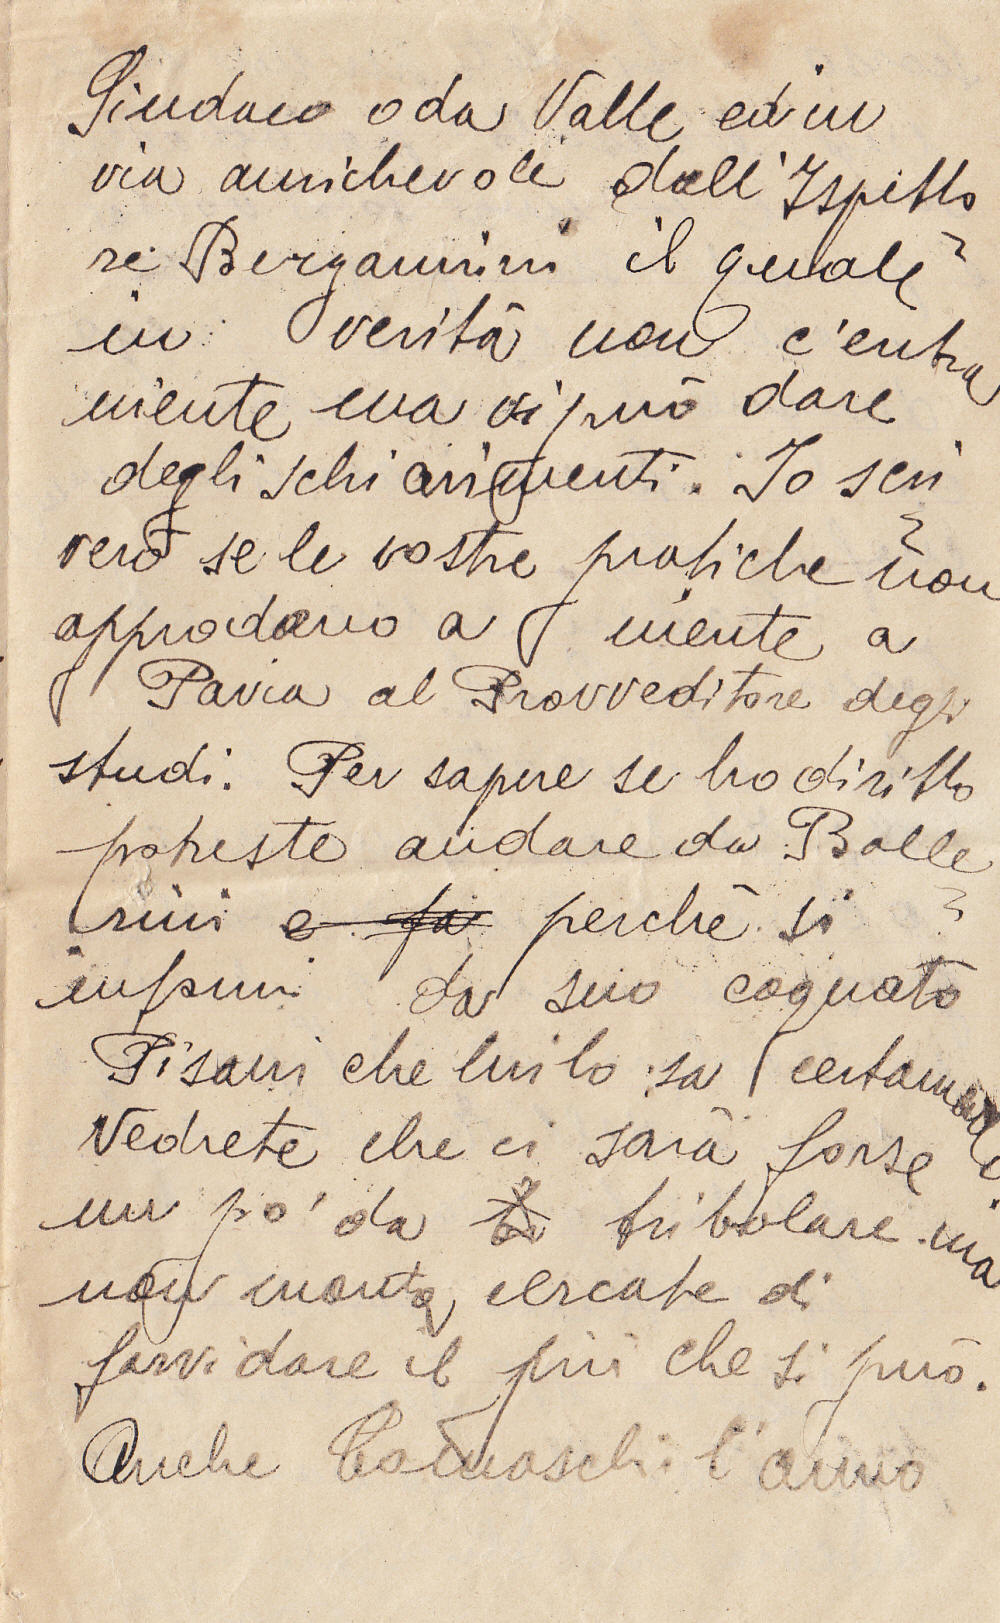 Sindaco o da Valle ed in
via amichevole dall'Ispetto
re Bergamini il quale
in verità non c'entra
niente ma vi può dare
degli schiarimenti. Io scri
verò se le vostre pratiche non
approdano a niente a
Pavia al Provveditore degli
studi. Per sapere se ho diritto
potreste andare da Balle
rini e fa perchè si
informi da suo cognato
Pisani che lui lo sa certamente
Vedrete che ci sarà forse
un po' da tribolare ma
non monta, cercate di
farvi dare il più che si può.
Anche Tomaschi l'anno